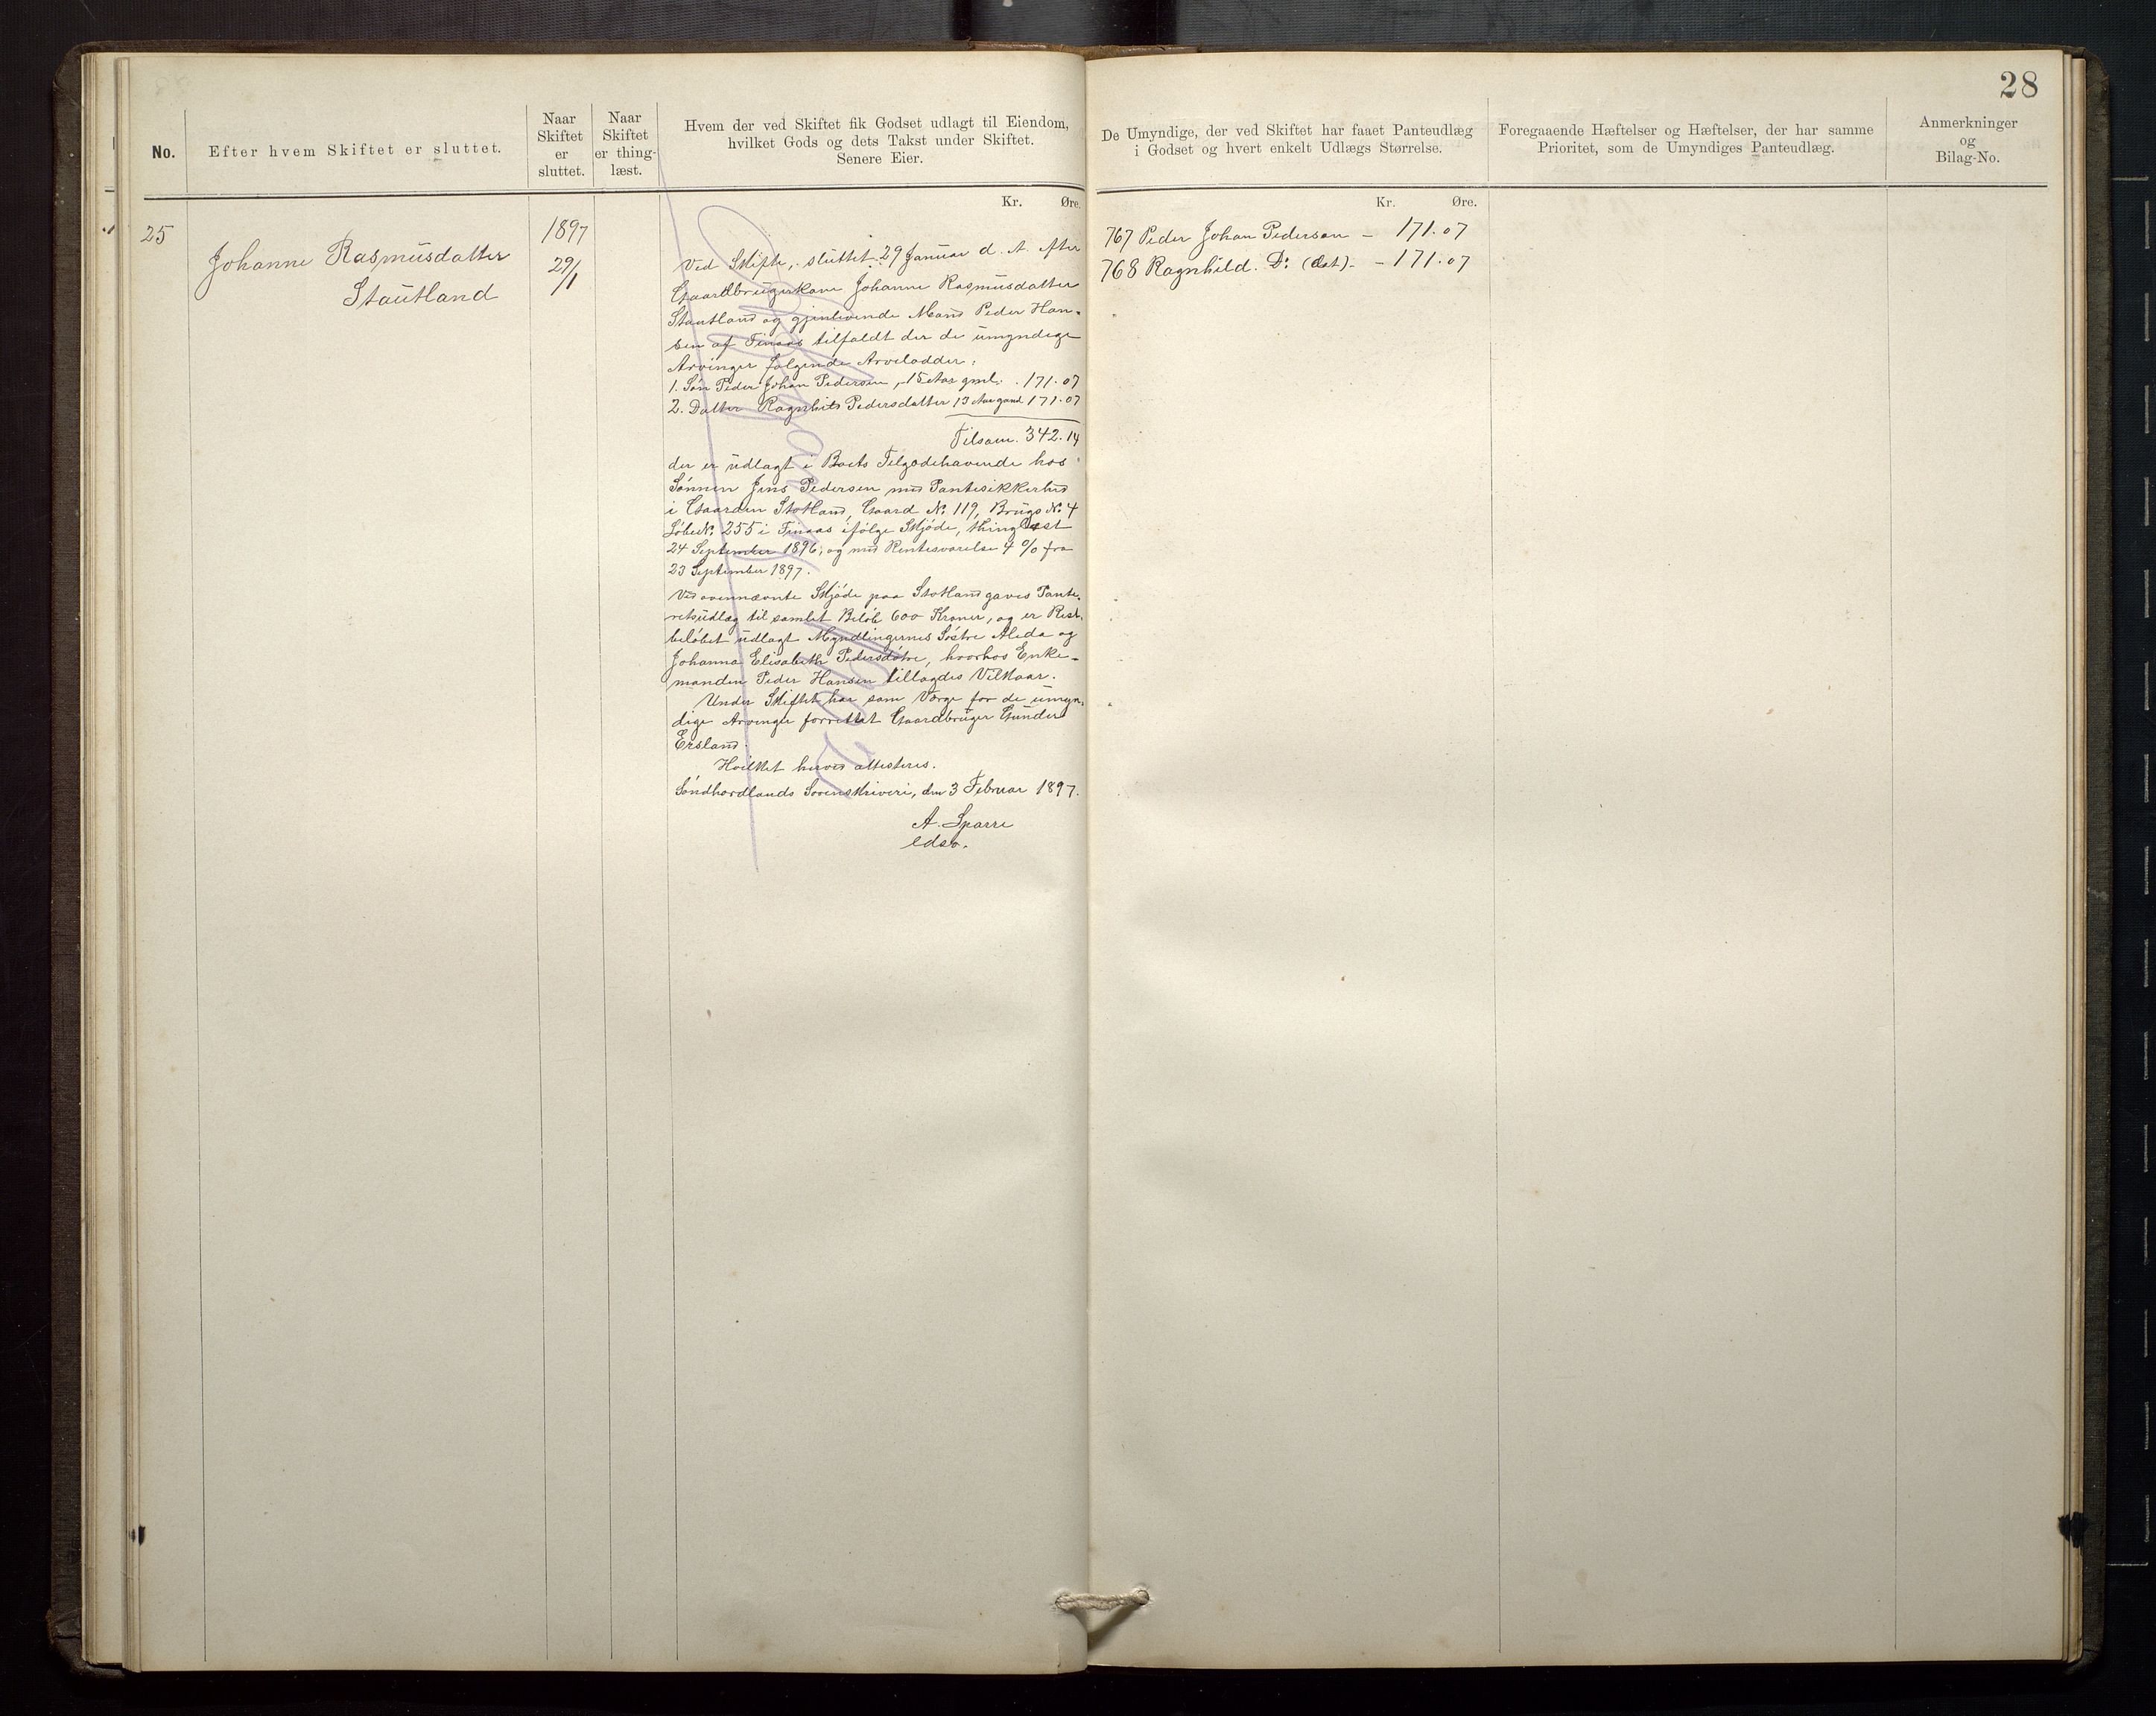 28
No.
Efter hvem Skiftet er sluttet.
Naar
Skiftet
er
sluttet.
Naar
Skiftet
er thing-
læst.
Hvem der ved Skiftet fik Godset udlagt til Eiendom,
hvilket Gods og dets Takst under Skiftet.
Senere Eier.
De Umyndige, der ved Skiftet har faaet Panteudlæg
i Godset og hvert enkelt Udlægs Størrelse.
Foregaaende Hæftelser og Hæftelser, der har samme
Prioritet, som de Umyndiges Panteudlæg.
Anmerkninger
og
Bilag-No.
Kr. Øre.
Kr. Øre.
25
Johanne Rasmusdatter
Stautland
1897
29/1
Ved Skifte, sluttet 29 Januar d. A. efter
Gaardbrugerkone Johanne Rasmusdatter
Stautland og gjenlevende Mand Peder Han-
sen af Finaas tilfaldt der de umyndige
Arvinger følgende Arvelodder:
1. Søn Peder Johan Pedersen, 15 Aar gml. 171.07
2. Datter Ragnhild Pedersdatter 13 Aar gaml 171.07
Tilsam. 342.14
der er udlagt i Boets Tilgodehavende hos
Sønnen Jens Pedersen med Pantesikkerhed
i Gaarden Stotland, Gaard No. 119, Brugs No. 4
LøbeNo. 255 i Finaas ifølge Skjøde, thinglæst
24 September 1896, og med Rentesvarelse 4 % fra
23 September 1897.
Ved ovennævnte Skjøde paa Stotland gaves Pante-
retsudlæg til samlet Beløb 600 Kroner, og er Rest-
beløbet udlagt Myndlingernes Søstre Alida og
Johanna Elisabeth Pedersdøtre, hvorhos Enke-
manden Peder Hansen tillagdes Vilkaar.
Under Skiftet har som Værge for de umyn-
dige Arvinger forrettet Gaardbruger Gunder
Ersland.
Hvilket herved attesteres.
Søndhordlands Sorenskriveri, den 3 Februar 1897.
A. Sparre
edsv.
767 Peder Johan Pedersen - 171.07
768 Ragnhild. Do: (dat) - 171.07